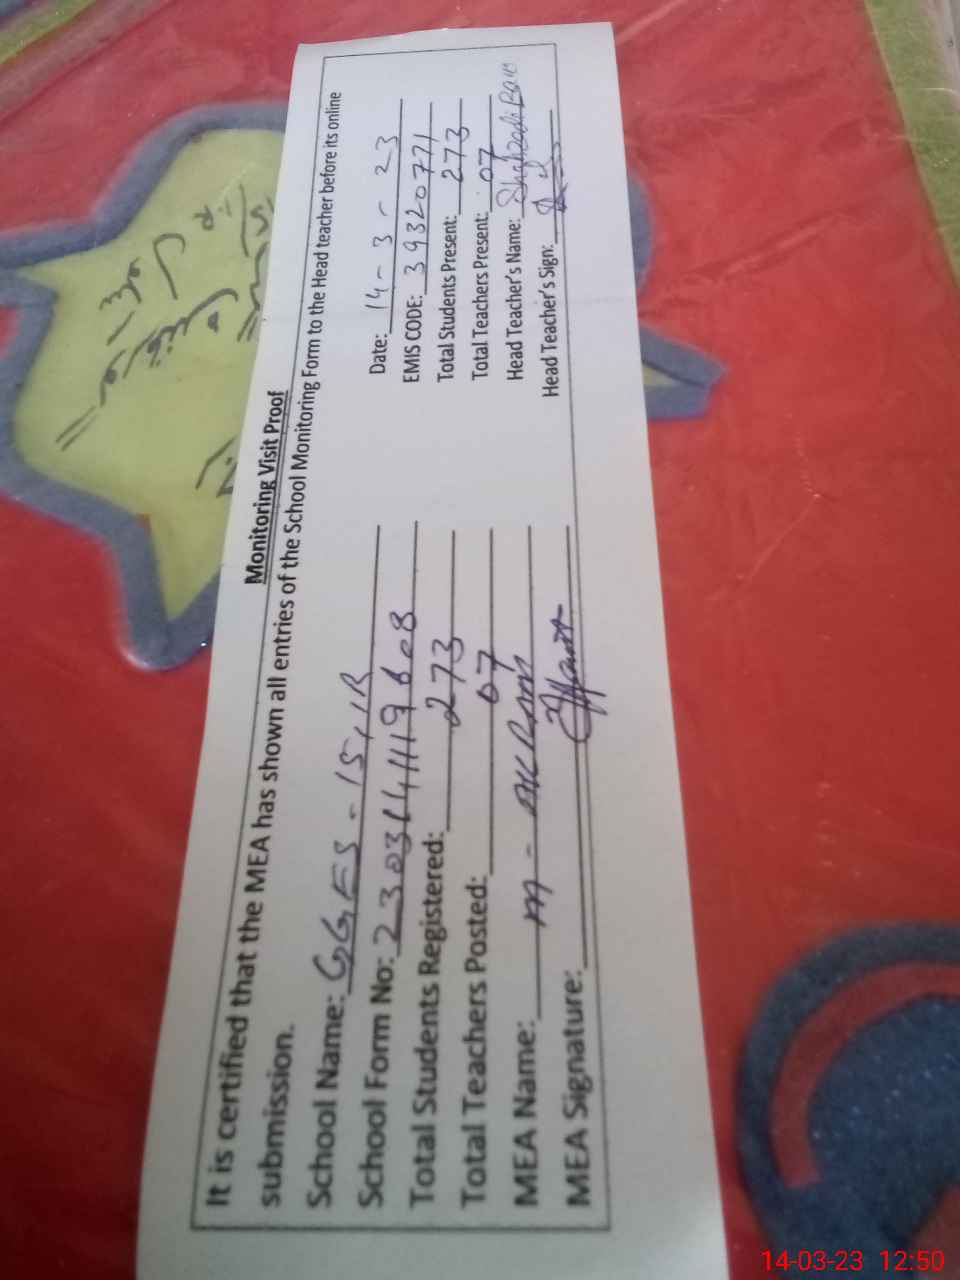 Monitoring Visit Proof
It is certified that the MEA has shown all entries of the School Monitoring Form to the Head teacher before its online
submission.
School Name: GGES - 15/1R
Date: 14 - 3 - 23
School Form No:
EMIS CODE: 39320771
Total Students Registered: 273
Total Students Present: 273
Total Teachers Posted: 07
Total Teachers Present: 07
MEA Name: M - AKRAM
Head Teacher's Name: Shahzadi
MEA Signature:
Head Teacher's Sign:
14-03-23 12:50